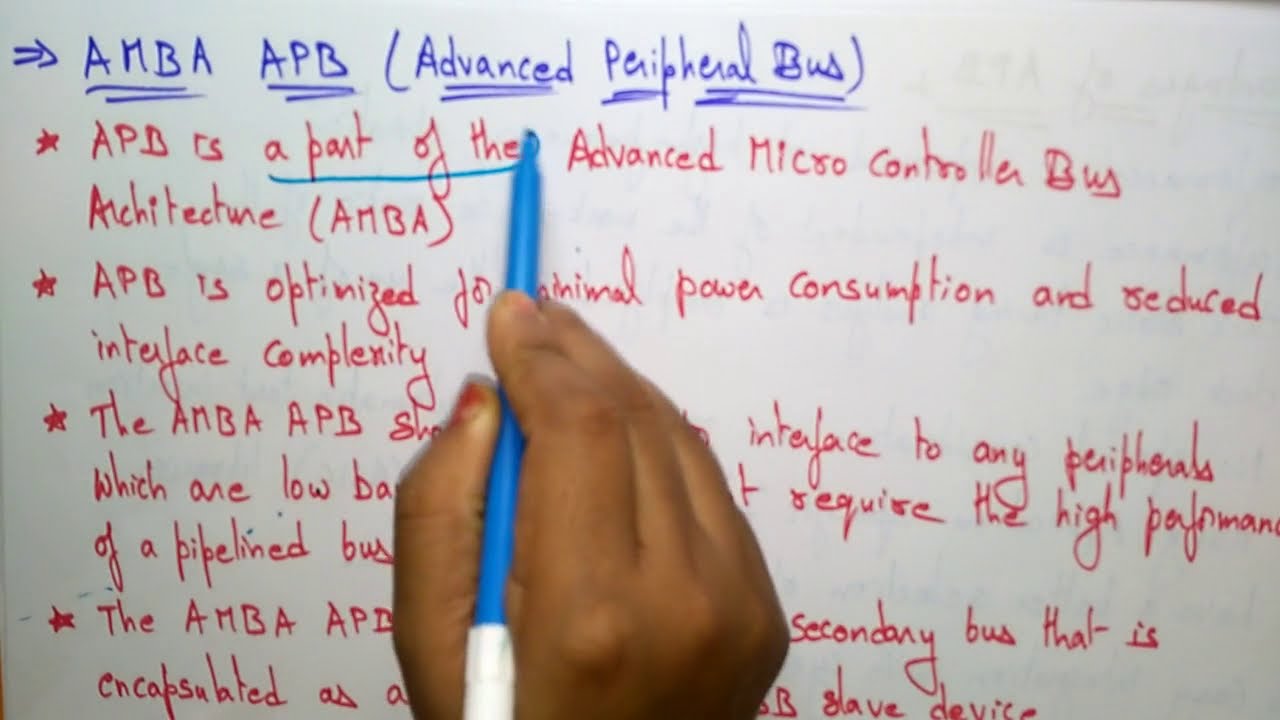 ⇒ AMBA APB (Advanced Peripheral Bus)
★ APB is a part of the Advanced Micro Controller Bus
Architecture (AMBA)
★ APB is optimized for minimal power consumption and reduced
interface complexity
★ The AMBA APB interface to any peripherals
Which are low require the high performan
of a pipelined bus
★ The AMBA APB secondary bus that is
encapsulated as a slave device